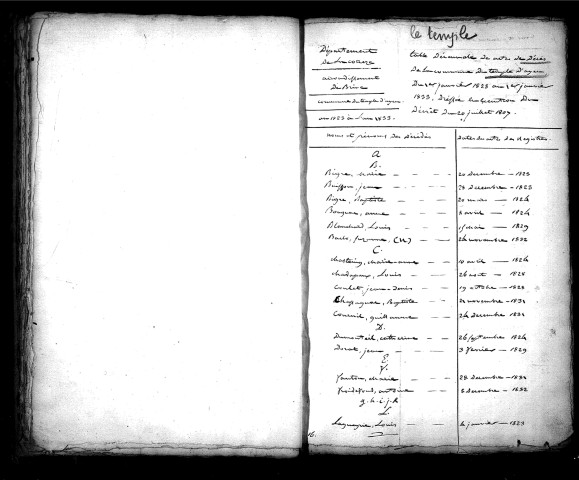 le temple
Département
De la Corrèze
arrondissement
De Brive
commune du temple d'ayen
an 1823 à l'an 1833.
table Décennale De actes de Décès
De la commune Du temple d'ayen
Du 1er janvier 1823 au 1er janvier
1833, Dressée en Exécution Du
Décret Du 20 juillet 1807.
noms et prénoms Des Décédés
Dates des actes des registres
A
B.
Bugre, marie — 20 Decembre - 1823
Buisson, jean — 28 Decembre - 1823
Bugre, Baptiste — 20 mai - 1824
Bouyues, anne — 8 avril - 1824
Blanchard, Louis — 1829
(n) — 24 novembre 1832
C.
marie-anne — 10 avril - 1824
Louis — 26 aout - 1828
jean-Louis — 19 octobre - 1828
Chapagnac, Baptiste — novembre - 1831
guillaume — 24 Decembre 1831
D.
Dumonteil, catherine — 26 septembre 1824
jean — 3 février - 1829
E.
f.
marie — 28 Decembre - 1831
antoine — 8 Decembre - 1832
g. h. i. j. k
L.
Lagueyrie, Louis — janvier - 1823
16.